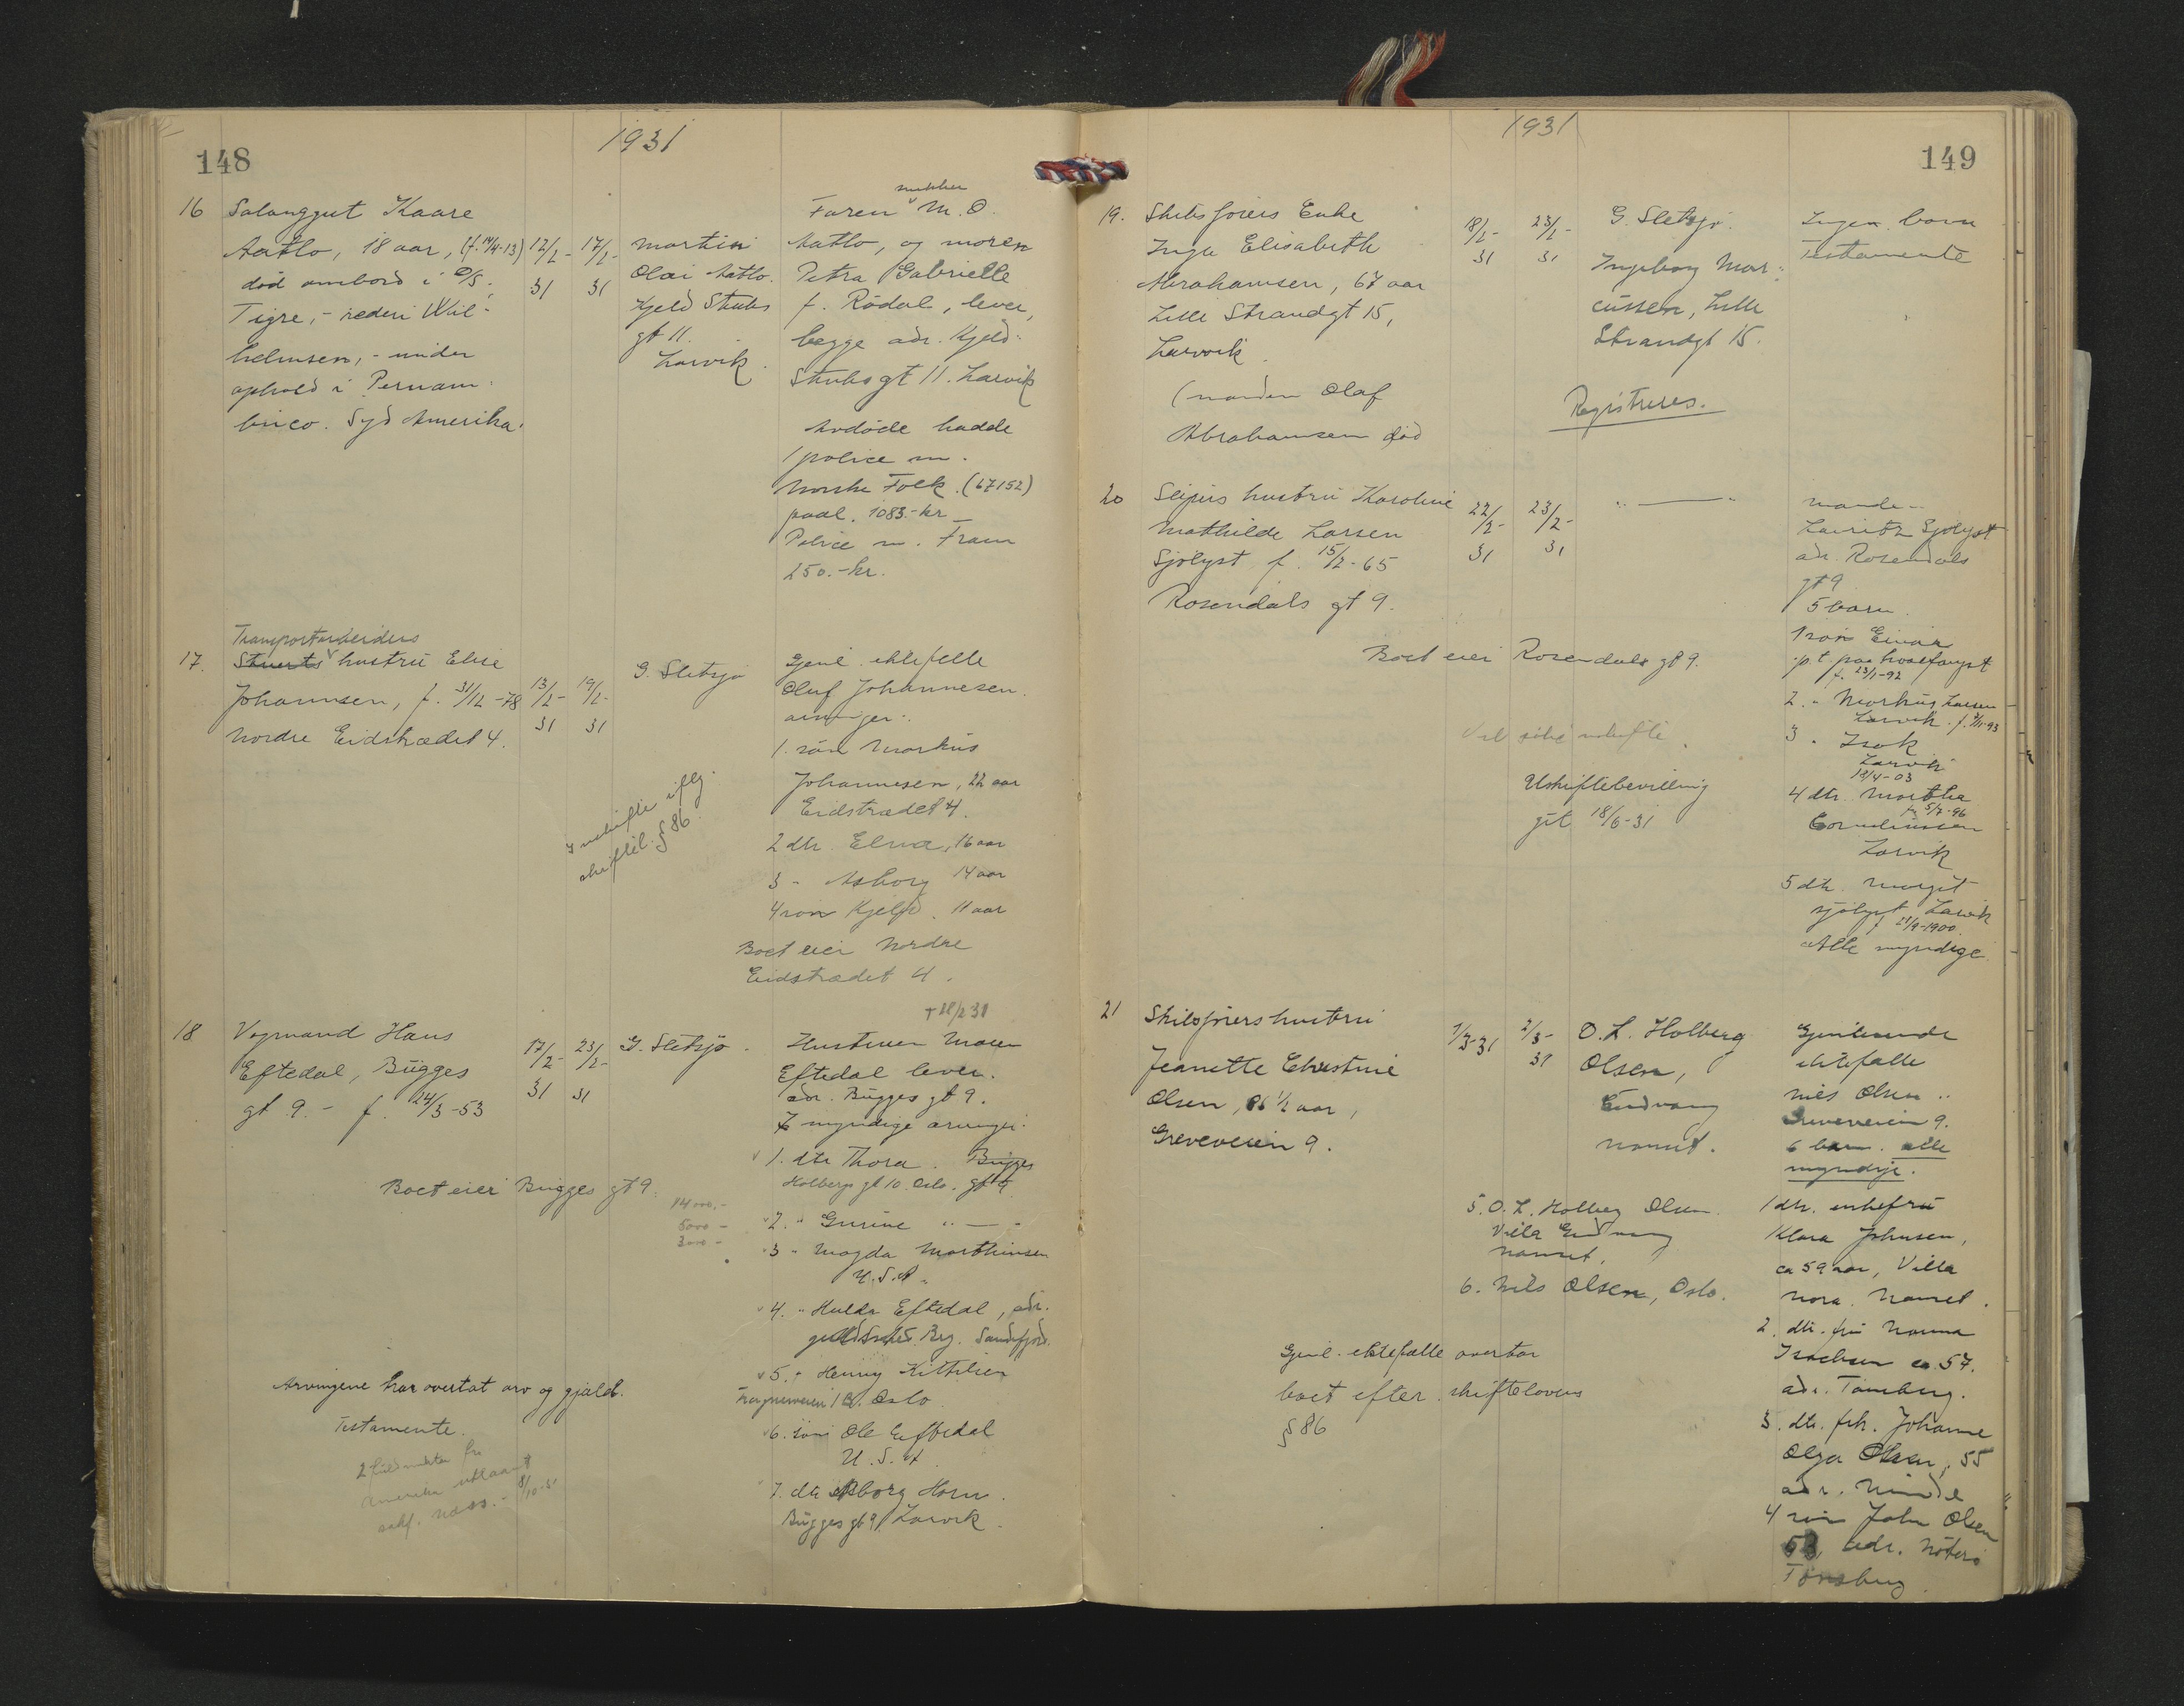 148
1931
16 Kaare
Aatlo, 18 aar, (f. 14/4-13) 12/2- 31 17/2- 31
død ombord i D/S.
Tigre, - rederi Wil-
helmsen, - under
ophold i Pernam-
buco. Syd Amerika.
Martin
Olai Aatlo.
Kjeld Stubs
gt 11.
Larvik.
Faren M.O.
Aatlo, og moren
Petra Gabrielle
f. Rødal, lever,
begge adr. Kjeld
Stubsgt 11. Larvik
Avdøde hadde
1 police m.
Norske Folk. (67152)
paal. 1083.- kr.
Police m. Fram
250.- kr.
Transportarbeiders
17. hustru Elise
Johannesen, f. 31/12-78 13/2- 31 19/2- 31
Nordre Eidstrædet 4.
G. Sletsjø
Gjenl. ektefelle
Oluf Johannesen.
arvinger:
1. søn Markus
Johannesen, 22 aar
Eidstrædet 4.
2 dtr. Elna, 16 aar
3 - Asborg 14 aar
4 søn Kjeld. 11 aar
Boet eier Nordre
Eidstrædet 4.
I uskifte iflg.
skiftel. § 86.
18 Vognmand Hans
Eftedal, Bugges
gt 9. - f. 24/3-53
17/2- 31 23/2- 31
G. Sletsjø.
† 28/2 31
Hustruen Maren
Eftedal lever.
adr. Bugges gt 9.
7 myndige arvinger:
1. dtr Thora. Bugges
Holbergs gt 10. Oslo. gt 9
2. " Gurine " — "
3 " Magda Marthinsen
U.S.A.
4. " Hulda Eftedal, adr.
Berg. Sandefjord.
5. " Henny Kittilsen
Oslo
6. søn Ole Eftedal
U.S.A.
7. dtr Asborg Horn.
Bugges gt 9, Larvik.
Boet eier Bugges gt 9.
14000.-
5000 -
3000 -
Arvingene har overtat arv og gjæld.
Testamente.
149
1931
19. Skibsførers Enke
Inga Elisabeth
Abrahamsen, 67 aar
Lille Strandgt 15,
Larvik.
(manden Olaf
Abrahamsen død
18/2- 31 23/2- 31
G. Sletsjø.
Ingeborg Mar-
cussen, Lille
Strandgt 15.
Registreres.
Ingen barn
Testamente
20 Slipers hustru Karoline
Mathilde Larsen
Sjølyst f. 15/2-65
Rosendals gt 9.
22/2- 31 23/2- 31
" — "
Lauritz Sjølyst
adr. Rosendals
gt 9
5 barn.
1 søn Einar
p.t. paa hvalfangst
f. 23/1-92
2. " Markus Larsen
Larvik
3 " Isak
Larvik
18/4-03
4 dtr. Martha
f. 5/7-96
Corneliussen
Larvik
5 dtr. Margit
Sjølyst Larvik
f 21/9-1900.
Alle myndige
Boet eier Rosendals gt 9.
Vil søke uskifte.
Uskiftebevilling
git 18/6-31
21 Skibsførers hustru
Jeanette Christine
Olsen, 86 1/2 aar,
Greveveien 9.
1/3-31 2/3- 31
O. L. Holberg
Olsen,
Nanset.
Gjenlevende
ektefælle
Nils Olsen
Greveveien 9.
6 barn. alle
myndige.
1 dtr. enkefru
Klara Johnsen,
ca 59 aar, Villa
Nora. Nanset.
2. dtr. fru Nanna
Isachsen ca. 57.
adr. Tønsberg.
3. dtr. frk. Johanne
Olga Olsen, 55
adr. Minde
4 søn John Olsen
53, adr. Nøterø
Tønsberg.
5. O. L. Holberg Olsen.
Nanset,
6. Nils Olsen, Oslo.
Gjenl. ektefælle overtar
boet efter skiftelovens
§ 86